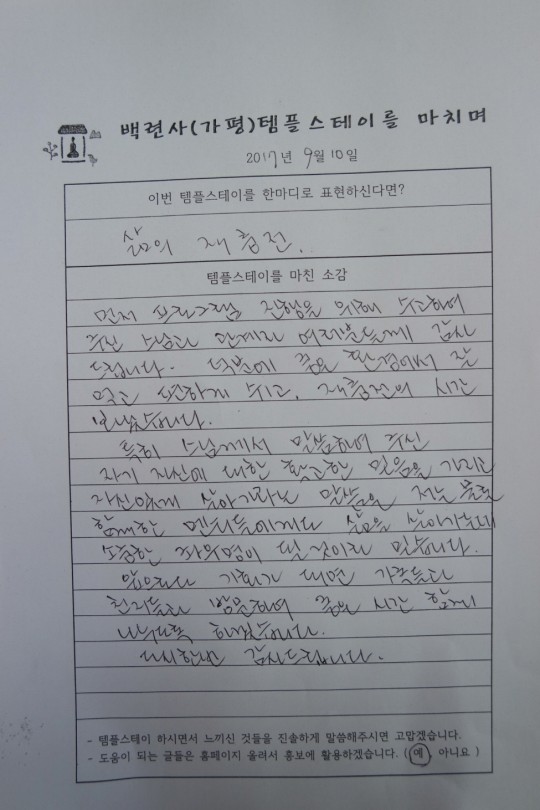 백련사(가평)템플스테이를 마치며
2017년 9월 10일
이번 템플스테이를 한마디로 표현하신다면?
삶의 재충전.
템플스테이를 마친 소감
먼저 프로그램 진행을 위해 수고하여
주신 스님과 관계자 여러분들께 감사
드립니다. 덕분에 좋은 환경에서 잘
먹고 편하게 쉬고, 재충전의 시간
보냈습니다.
특히 스님께서 말씀하여 주신
자기 자신에 대한 확고한 믿음을 가지고
자신있게 살아가라는 말씀은 저는 물론
함께한 멘티들에게도 삶을 살아가는데
소중한 좌우명이 될 것이라 믿습니다.
앞으로도 기회가 되면 가족들과
친지들과 방문하여 좋은 시간 함께
나누도록 하겠습니다.
다시한번 감사드립니다.
- 템플스테이 하시면서 느끼신 것들을 진솔하게 말씀해주시면 고맙겠습니다.
- 도움이 되는 글들은 홈페이지 올려서 홍보에 활용하겠습니다. ( 예, 아니요 )